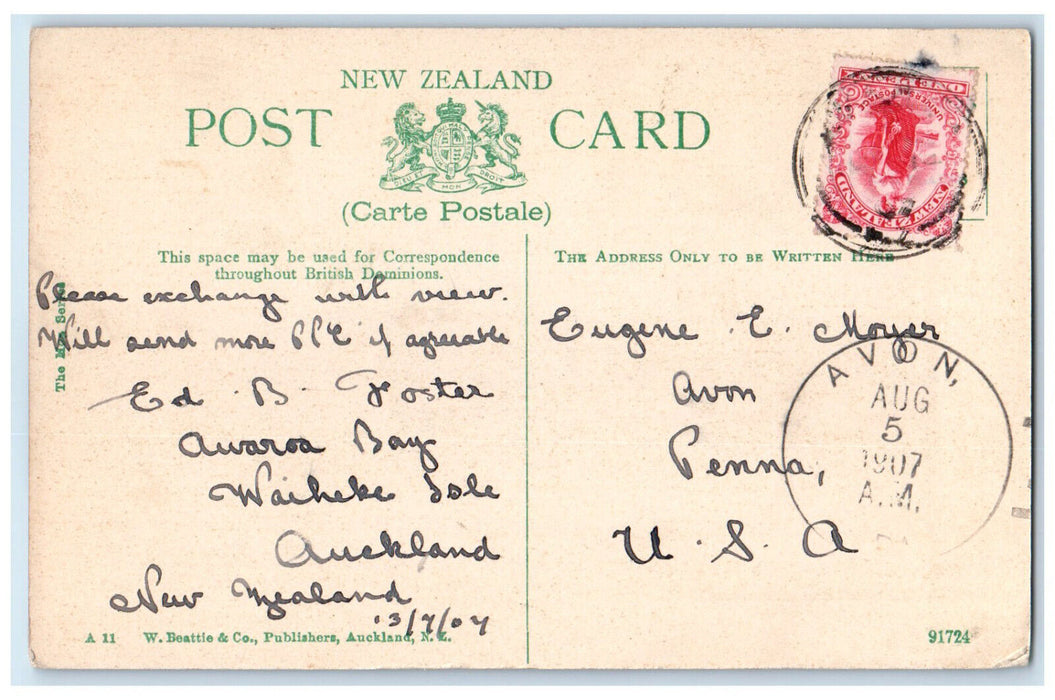 NEW ZEALAND
POST CARD
DIEU ET MON DROIT
(Carte Postale)
ONE PENNY
UNIVERSAL POSTAGE
NEW ZEALAND
This space may be used for Correspondence
throughout British Dominions.
Please exchange with view.
Will send more PPC if agreeable
Ed. B. Foster
Awaroa Bay
Waiheke Isle
Auckland
New Zealand
13/7/07
THE ADDRESS ONLY TO BE WRITTEN HERE
Eugene E. Moyer
Avon
Penna,
U.S.A
AVON,
AUG
5
1907
A.M.
The Series
A 11 W. Beattie & Co., Publishers, Auckland, N.Z.
91724